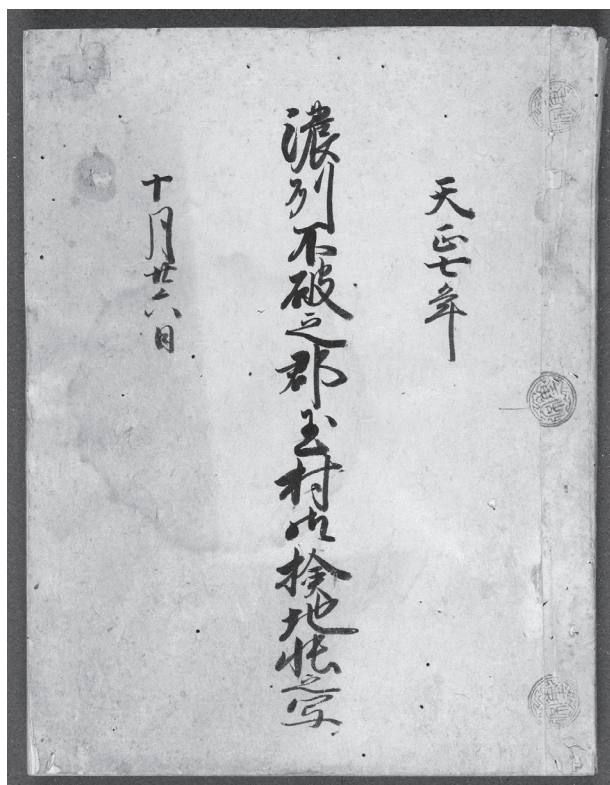 天正七年
濃列不破之郡玉村御捡地帳之写
十月廿六日